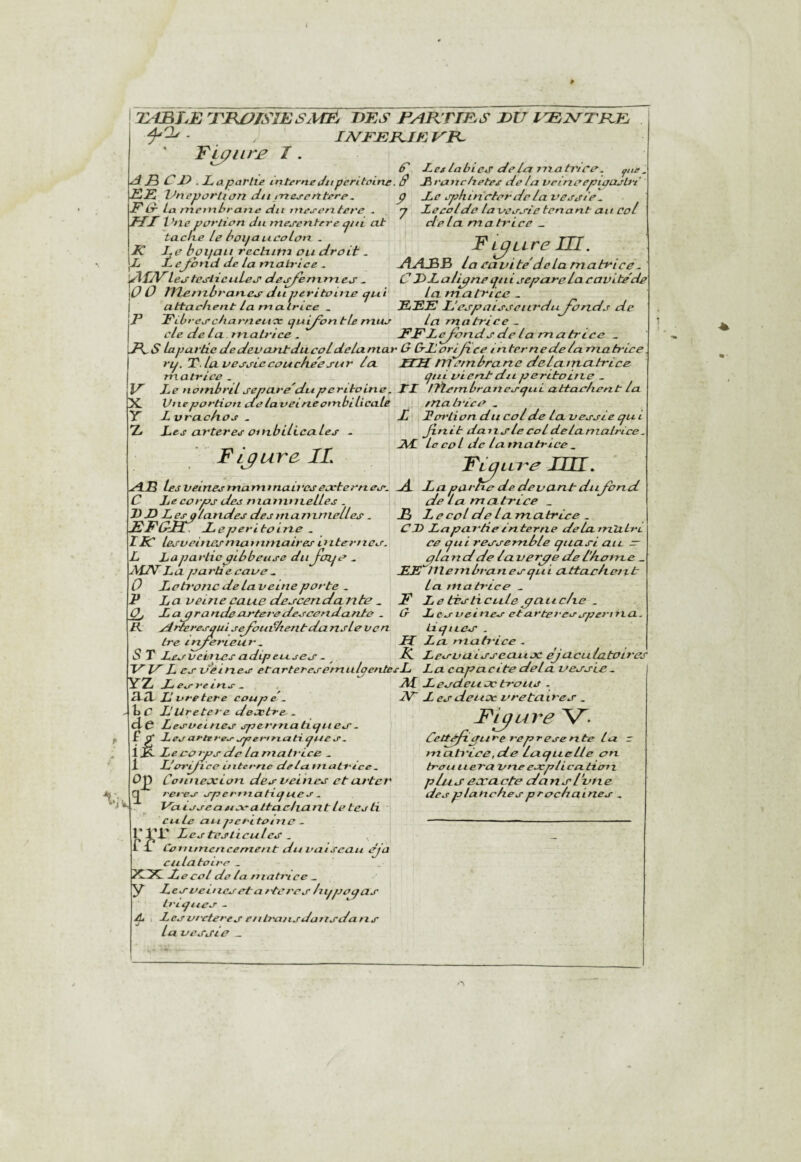 TABLE TROISIESME DES PARTIES DU VENTRE
INFERIEUR
Figure I.
A B C D. La partie interne du peritoine.
EE Vne portion du mesentere.
F G La membrane du mesentere.
HI Vne portion du mesentere qui at
tache le boyau colon.
K Le boyau rectum ou droit.
L Le fond de la matrice.
MN les testicules des femmes.
O O Membranes du peritoine qui
attachent la matrice.
P Fibres charneux qui font le mus
cle de la matrice.
R S la partie de devant du col de la mat
ry. T. la vessie couchée sur la
matrice.
V Le nombril separé du peritoine.
X Vne portion de la veine ombilicale
Y L vrachos.
Z Les arteres ombilicales.
Figure II.
AB les veines mammaires externes.
C Le corps des mammelles.
D D Les glandes des mammelles.
EFGH. Le peritoine.
IK les veines mammaires internes.
L La partie gibbeuse du foye.
MN La partie cave.
O Le tronc de la veine porte.
P La veine caue descendante.
Q La grande artere descendante.
R Arteres qui se fourchent dans le ven
tre inferieur.
S T Les veines adipeuses.
VV Les veines et arteres emulgentes
YZ Les reins.
aa L'vretere coupé.
b c L'Uretere dextre.
de Les veines spermatiques.
f g Les arteres spermatiques.
i k Le corps de la matrice.
l L'orifice interne de la matrice.
Op Connexion des veines et arter
q reres spermatiques.
Vaisseaux attachant le testi
cule au peritoine.
rr Les testicules.
Commencement du vaiseau éja
culatoire.
XX. Le col de la matrice.
y Les veines et arteres hypogas
triques.
Les vreteres entrans dans dans
la vessie.
6 Les labies de la matrice. que
8 Branchetes de la veine epigastri
9 Le sphincter de la vessie.
7 Le col de la vessie tenant au col
de la matrice.
Figure III.
AABB la cavité de la matrice.
C D La ligne qui separe la cavité de
la matrice.
EEE L'espaisseur du fonds de
la matrice.
FF Le fonds de la matrice.
G G L'orifice interne de la matrice
HH Membrane de la matrice
qui vient du peritoine.
II Membranes qui attachent la
matrice.
L Portion du col de la vessie qui
finit dans le col de la matrice.
M le col de la matrice.
Figure IIII.
A La partie de devant du fond
de la matrice
B Le col de la matrice.
C D La partie interne de la matri
ce qui ressemble quasi au
gland de la verge de l'home.
EE Membranes qui attachent
la matrice.
F Le testicule gauche.
G Les veines et arteres sperma.
tiques.
H La matrice.
K Les vaisseaux éjaculatoires
L La capacite de la vessie.
M Les deux trous.
N Les deux vretaires.
Figure V.
Cette figure represente la
matrice, de laquelle on
trouuera vne explication
plus exacte dans l'vne
des planches prochaines.